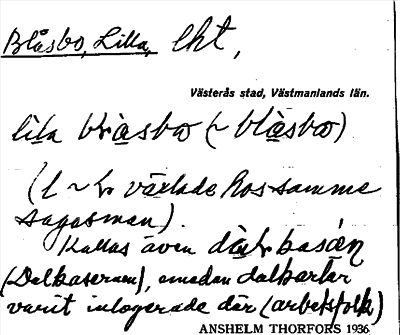 Blåsbo, Lilla, lht,
Västerås stad, Västmanlands län.
lila
(l ~ växlade hos samme
sagesman).
Kallas även
(Dalkasernen), emedan dalkarlar
varit inlogerade där (arbetsfolk)
ANSHELM THORFORS 1936